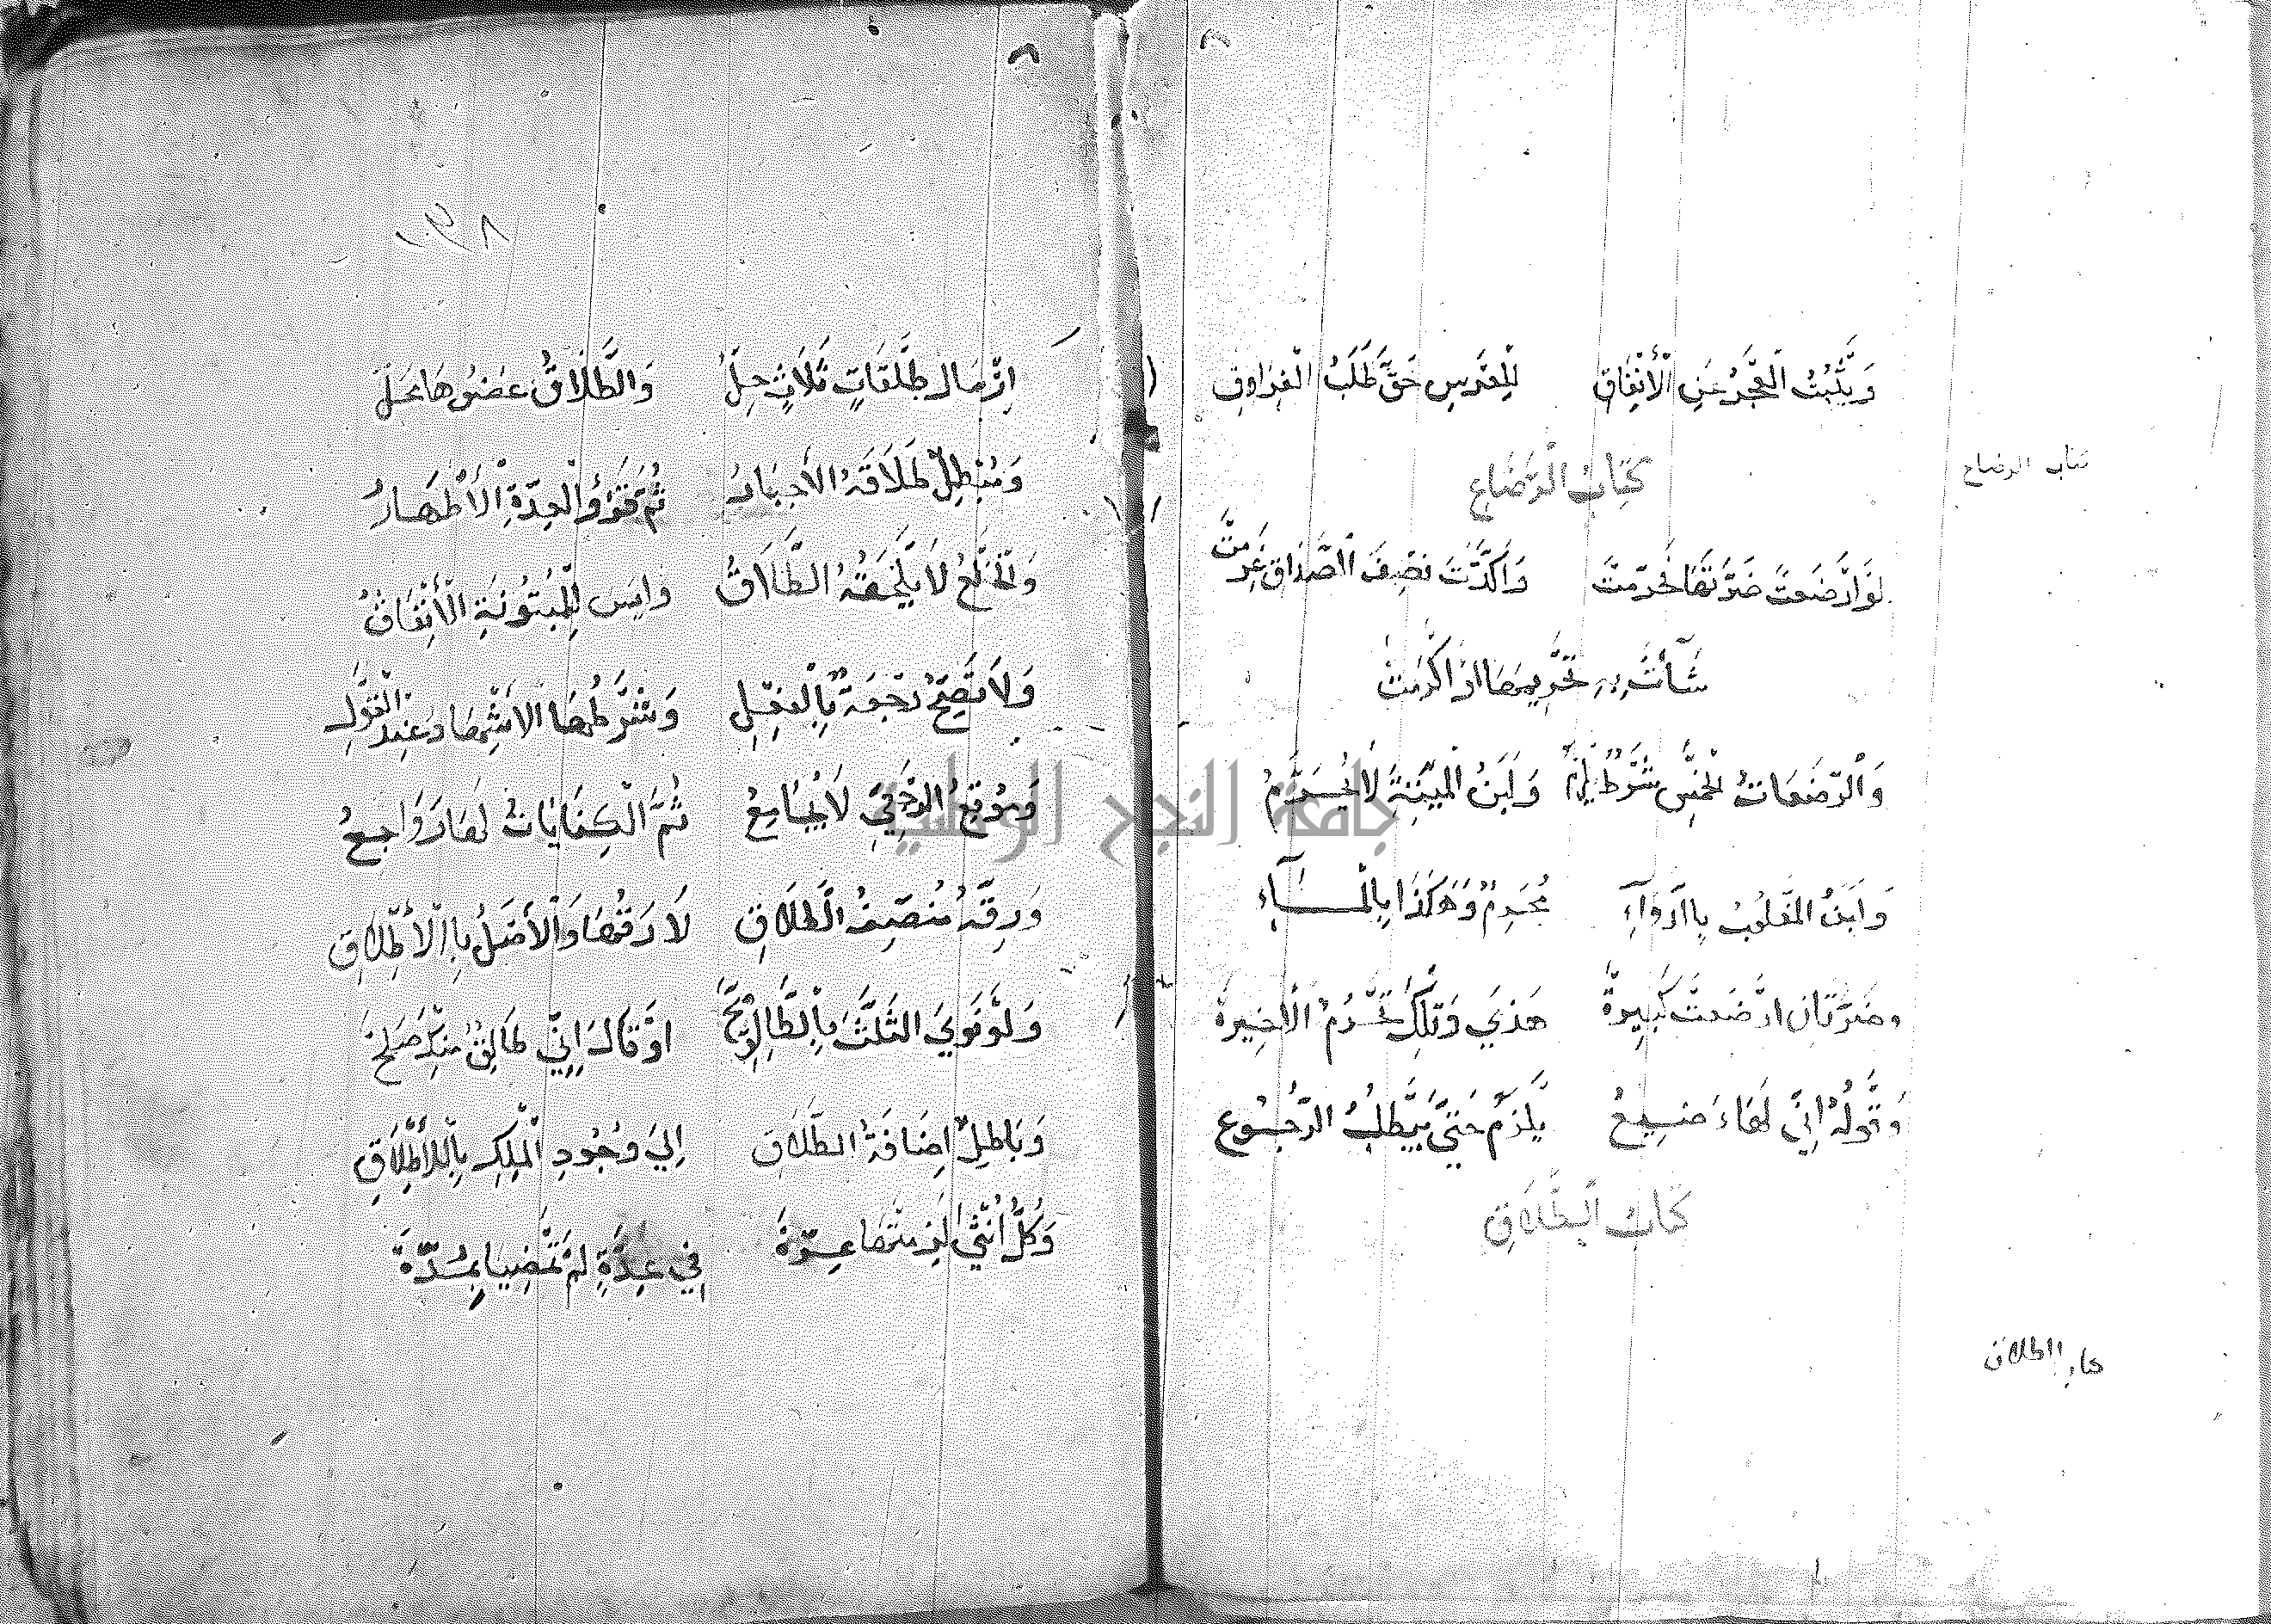 وَيُثْبِتُ الْعَجْزُ عَنِ الْأَنْفَاقِ لِلْعِرْسِ حَقَّ طَلَبُ الْفِرَاقِ
كِتَابُ الرَّضَاعِ
كتاب الرضاع
لَوْ اَرْضَعَتْ ضَرَّتَهَا فَحُرِّمَتْ وَاَكَّدَتْ نِصْفَ الصَّدَاقِ غُرِّمَتْ
شَآءَتْ بِهِ تَحْرِيمَهَا اَوْ اَكْرَمَتْ
وَالرَّضَعَاتُ الْخَمْسُ شَرْطٌ يَلْزَمُ وَلَبَنُ الْمَيِّتَةِ لَا يُحَرِّمُ
وَلَبَنُ الْمَغْلُوبُ بِالدَّوَآءِ مُحَرِّمٌ وَهَكَذَا بِالْمَآءِ
وَضَرَّتَانِ اَرْضَعَتْ كَبِيرَةٌ هَذِي وَتِلْكَ تُحْرَمُ الْاَخِيرَةُ
وَقَوْلُهُ اِنِّي لَهَاءَ ضِيعُ يَلْزَمُ حَتَّى يَبْطُلُ الرُّجُوعِ
كِتَابُ الطَّلَاقِ
كتاب الطلاق
٨
١٣٨
اِرْسَالُ طَلْقَاتٍ ثَلَاثٍ حِلُّ وَالطَّلَاقُ عُضْوُهَا مَحَلُّ
وَمُبْطِلٌ طَلَاقَهُ الْاِجْبَارُ ثُمَّ قُرُؤُ الْعِدَّةِ الْأَطْهَارُ
وَالْخُلْعُ لَا يَلْحَقُهُ الطَّلَاقُ وَلَيْسَ لِلْمَبْتُوتَةِ الْأَنْفَاقُ
وَلَا تَصِحُّ رَجْعَةٌ بِالْفِعْلِ وَشَرْطُهَا الْأَشْهَادُ عِنْدَ الْقَوْلِ
وَمُوقِعُ الرَّجْعِيِّ لَا يُجَامِعُ ثُمَّ الْكِنَايَاتُ لَهَا رَوَاجِعُ
وَرِقُّهُ مُنَصِّفُ الطَّلَاقِ لَا رِقُّهَا وَالْأَصْلُ بِالْأَطْلَاقِ
وَلَوْ نَوَى الثَّلَثَ بِالطَّالِقِ صَحَّ اَوْ قَالَ اِنِّي طَالِقٌ مِنْكِ صَلَحَ
وَبَاطِلٌ اِضَافَةُ الطَّلَاقِ اِلَى وُجُودِ الْمِلْكِ بِالْأَطْلَاقِ
وَكُلُّ اُنْثَى لَزِمَتْهَا عِدَّةُ فِي عِدَّةٍ لَمْ تَمْضِيَا بِمُدَّةَ
جامعة النجاح الوطنية